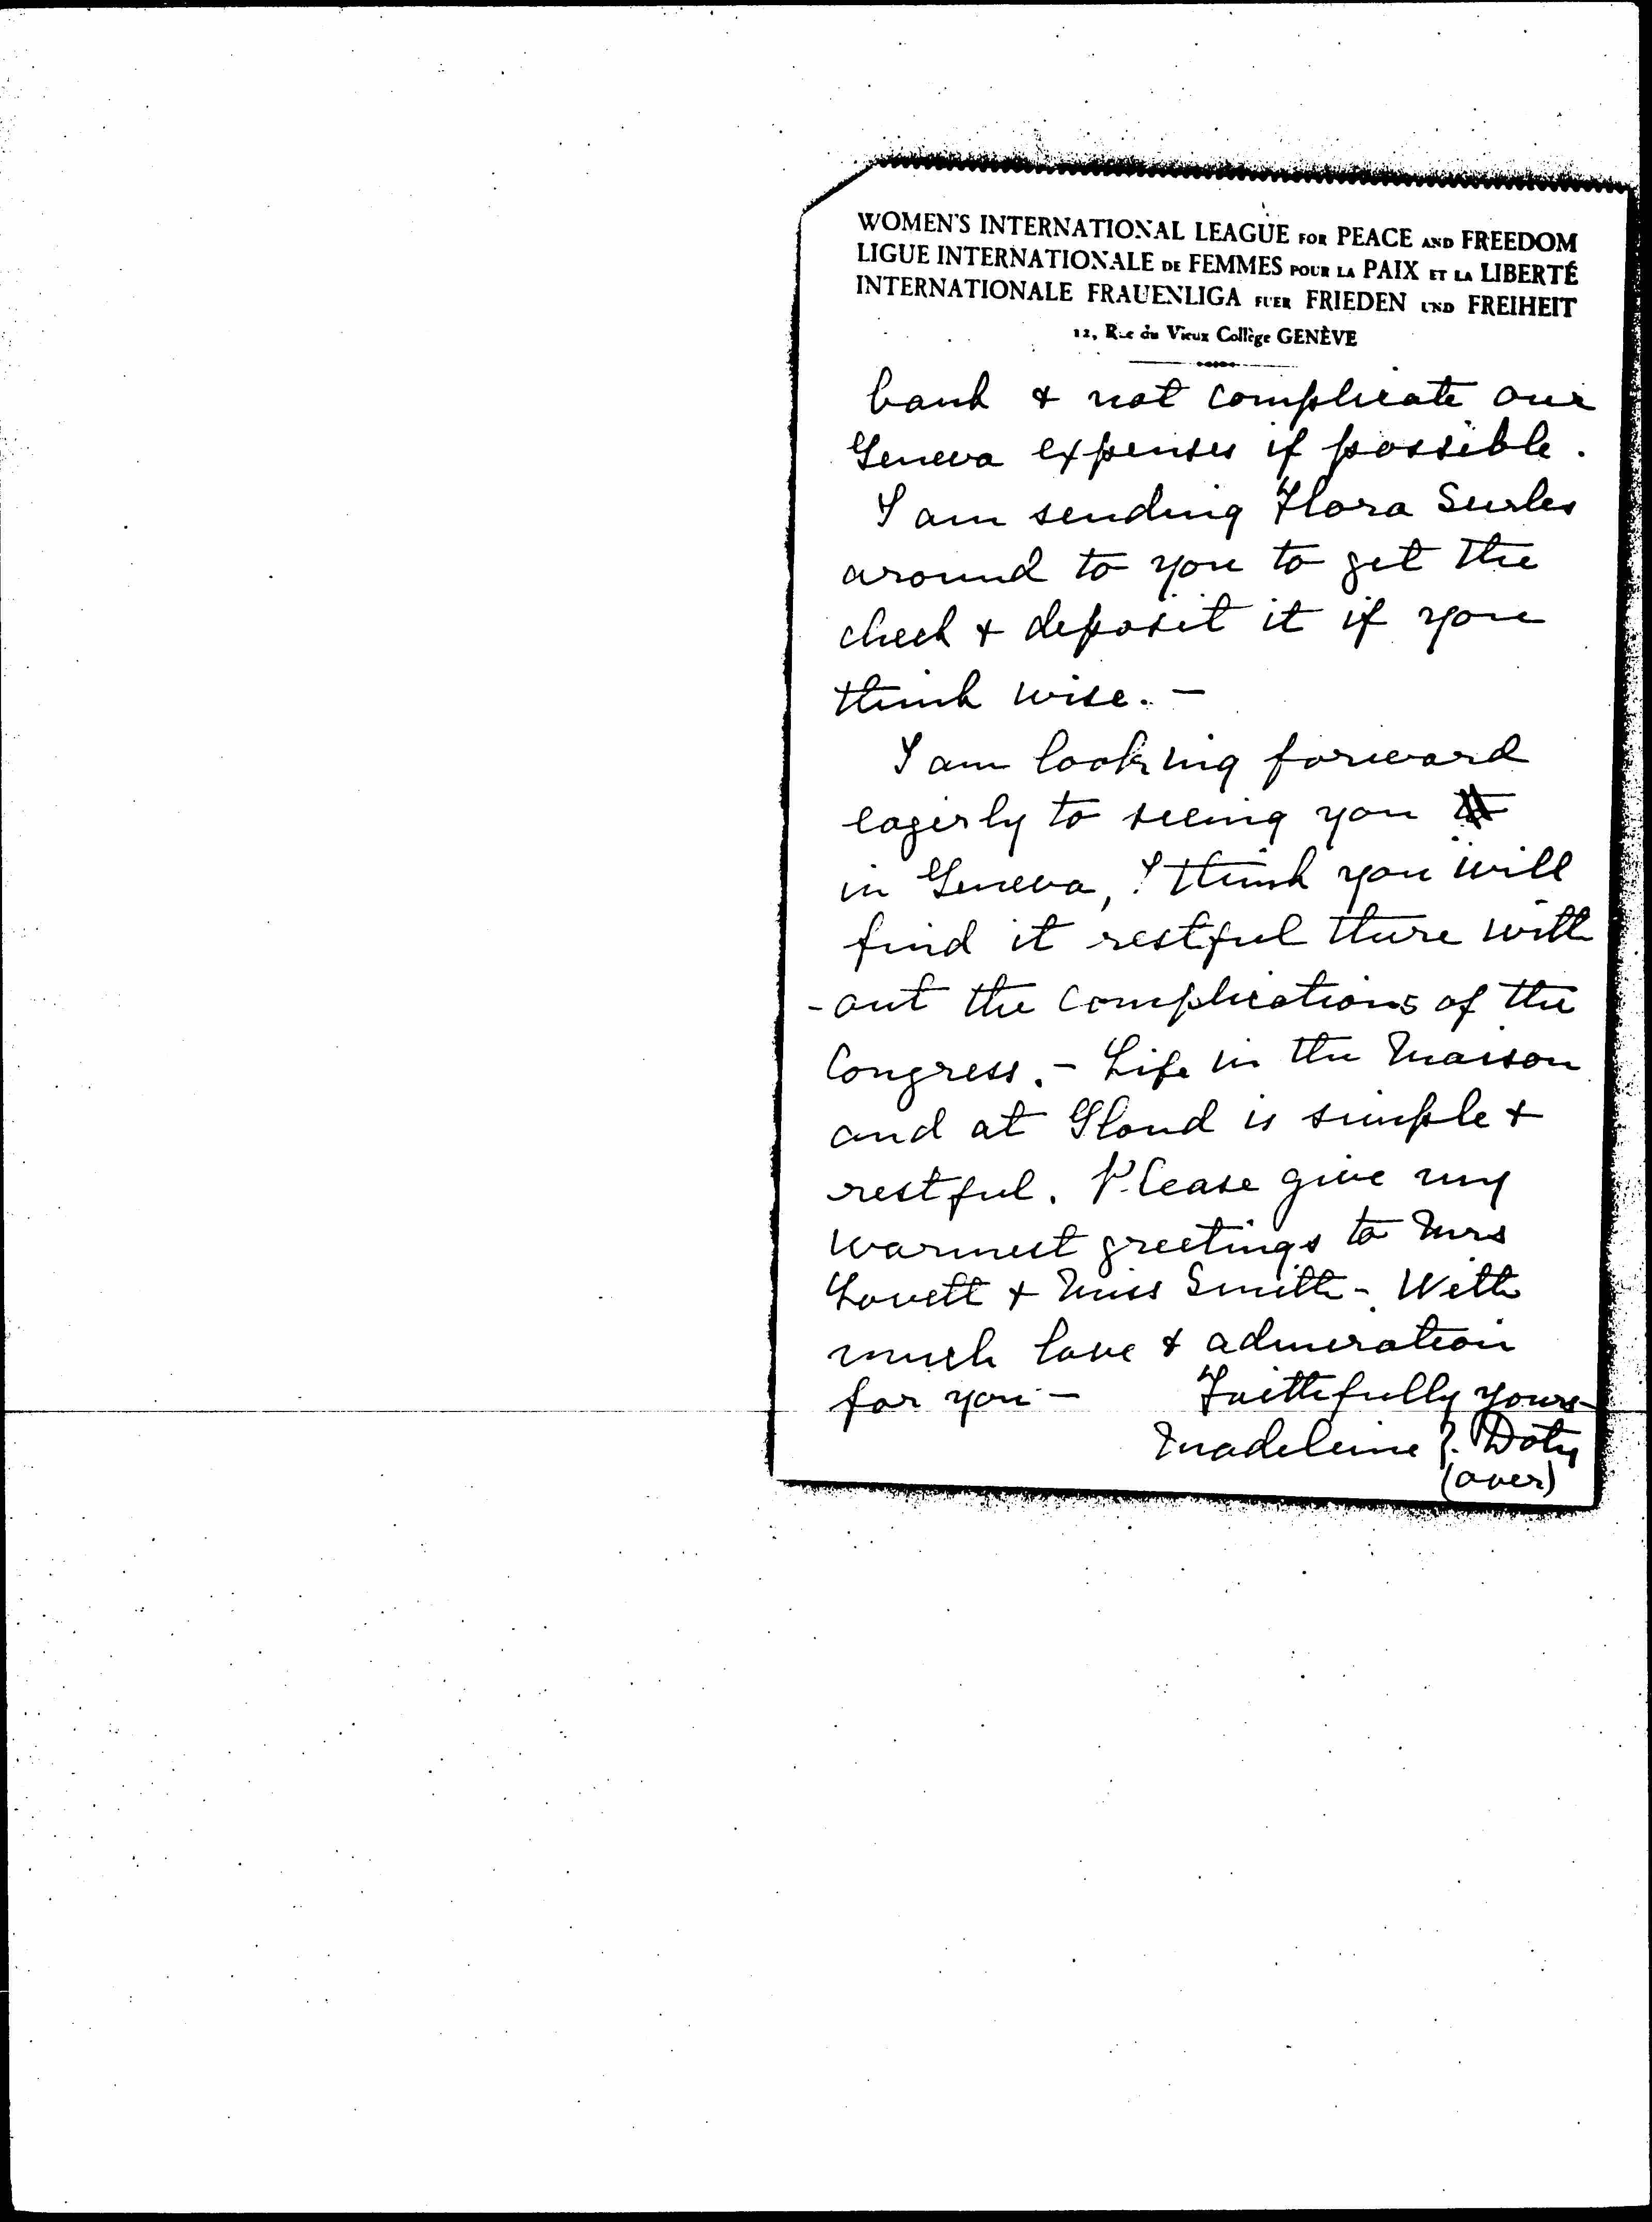 WOMEN'S INTERNATIONAL LEAGUE FOR PEACE AND FREEDOM
LIGUE INTERNATIONALE DE FEMMES POUR LA PAIX ET LA LIBERTÉ
INTERNATIONALE FRAUENLIGA FUER FRIEDEN UND FREIHEIT
12, Rue du Vieux Collège GENÈVE
bank & not complicate our
Geneva expenses if possible.
I am sending Flora Surles
around to you to get the
check & deposit it if you
think wise. -
I am looking forward
eagerly to seeing you
in Geneva, I think you will
find it restful there with
-out the complications of the
Congress. - Life in the Maison
and at Gland is simple &
restful. Please give my
warmest greetings to Mrs
Lovett & Miss Smith - With
much love & admiration
for you - Faithfully yours -
Madeleine Z. Doty
(over)